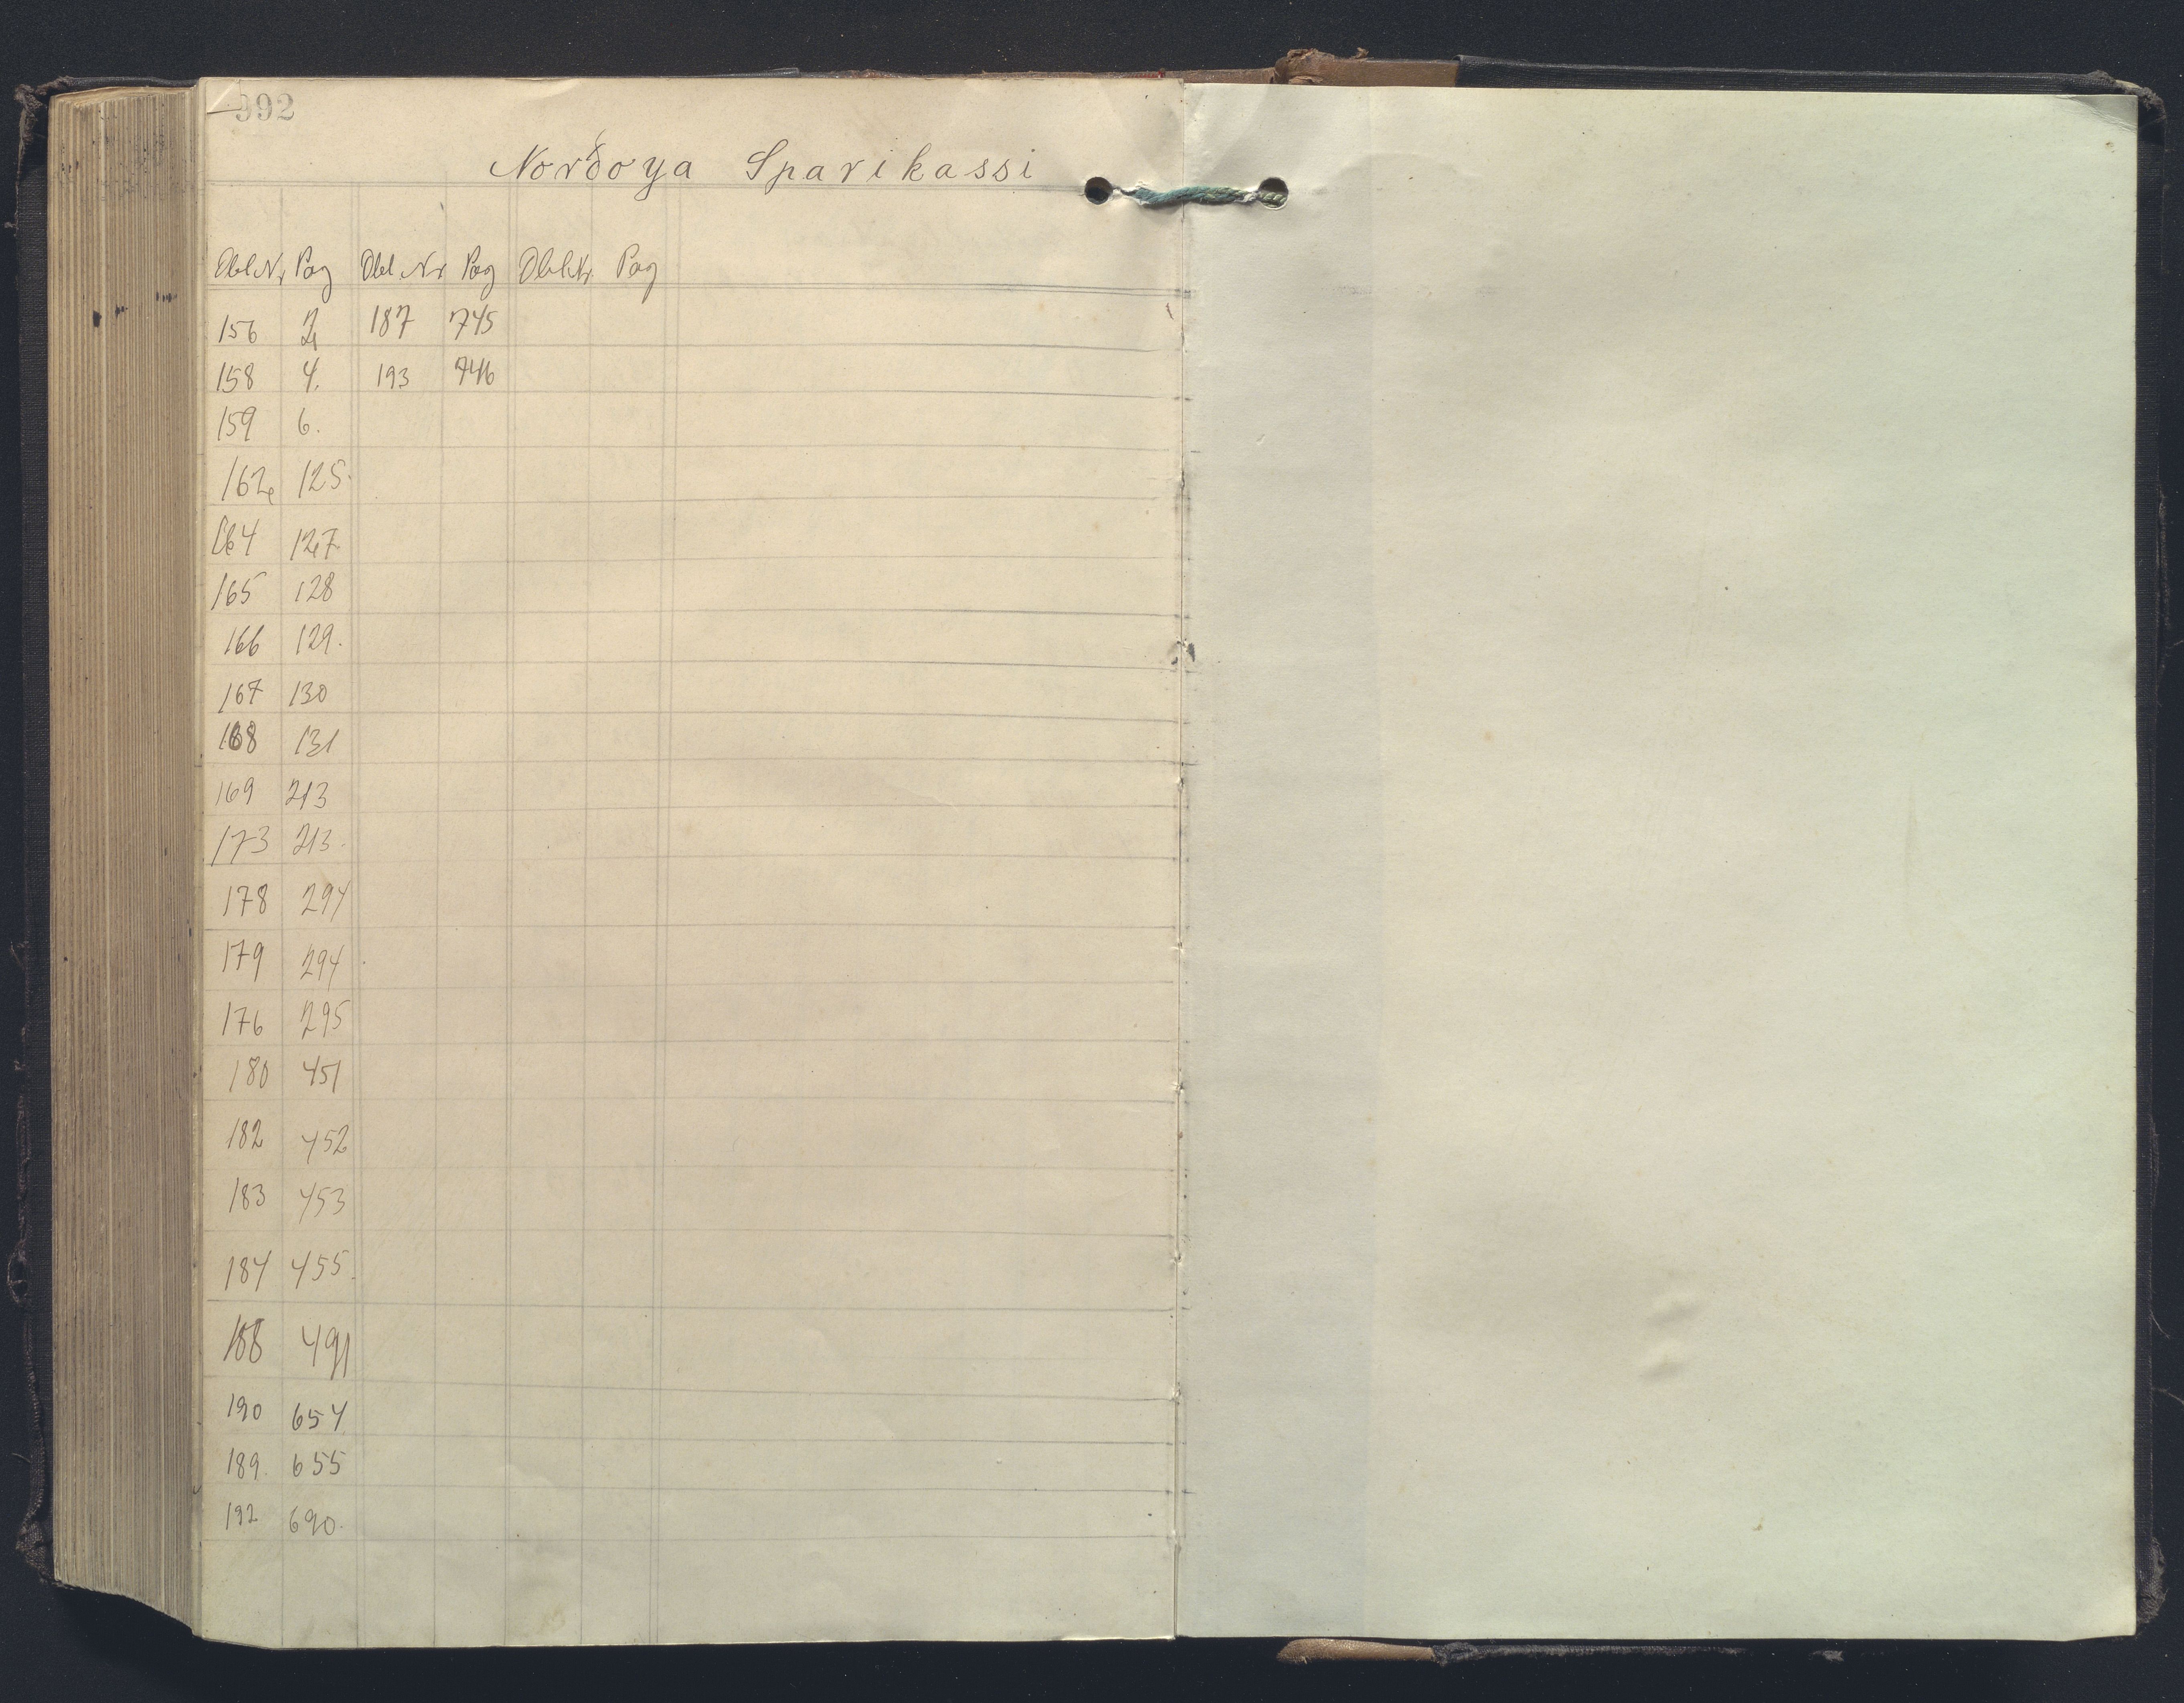 992
Norðoya Sparikassi
Obl.Nr Pag Obl.Nr Pag Obl.Nr. Pag
156 2 187 745
158 4. 193 746
159 6.
162 125.
164 127.
165 128
166 129.
167 130
168 131
169 213
173 213.
178 294
179 294
176 295
180 451
182 452
183 453
184 455.
188 491
190 654
189. 655
192 690.